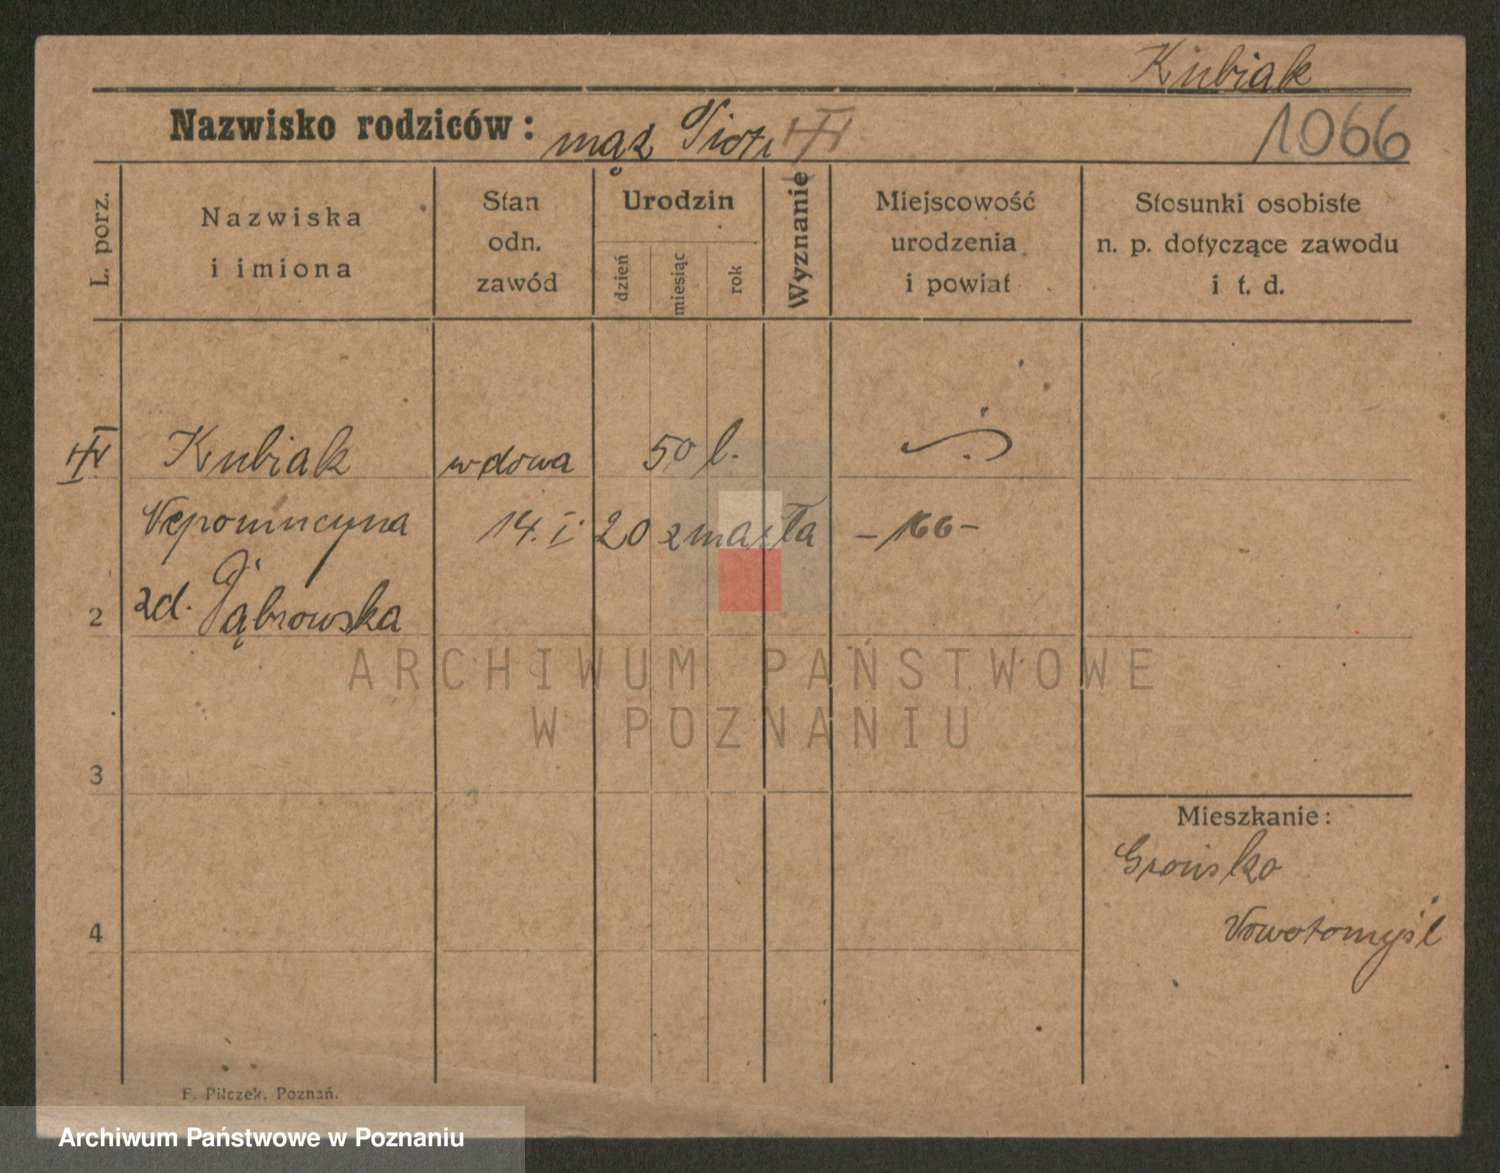 Kubiak
Nazwisko rodziców: mąż Piotr
1066
L. porz.
Nazwiska
i imiona
Stan
odn.
zawód
Urodzin
dzień
miesiąc
rok
Wyznanie
Miejscowość
urodzenia
i powiat
Stosunki osobiste
n. p. dotyczące zawodu
i t. d.
Kubiak wdowa 50 l.
Nepomucyna 14. I. 20 zmarła – 166 –
2 zd. Dąbrowska
ARCHIWUM PAŃSTWOWE
W POZNANIU
3
Mieszkanie:
Grońsko
4
Nowotomyśl
F. Pilczek, Poznań.
Archiwum Państwowe w Poznaniu